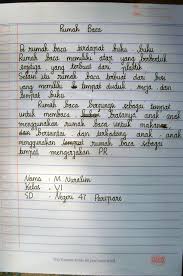 Rumah Baca
Di rumah baca terdapat buku, buku
Rumah baca memiliki atap yang berbentuk
segitiga yang terbuat dari plastik
Selain itu rumah baca terbuat dari besi
yang memiliki tempat duduk meja dan
tempat buku
Rumah baca berguna sebagai tempat
untuk membaca buku biasanya anak anak
menggunakan rumah baca untuk makan
dan bersantai dan terkadang anak anak
menggunakan tempat rumah baca sebagai
tempat mengerjakan PR
Nama : M Nuralim
Kelas : VI
SD Negeri 47 Parepare